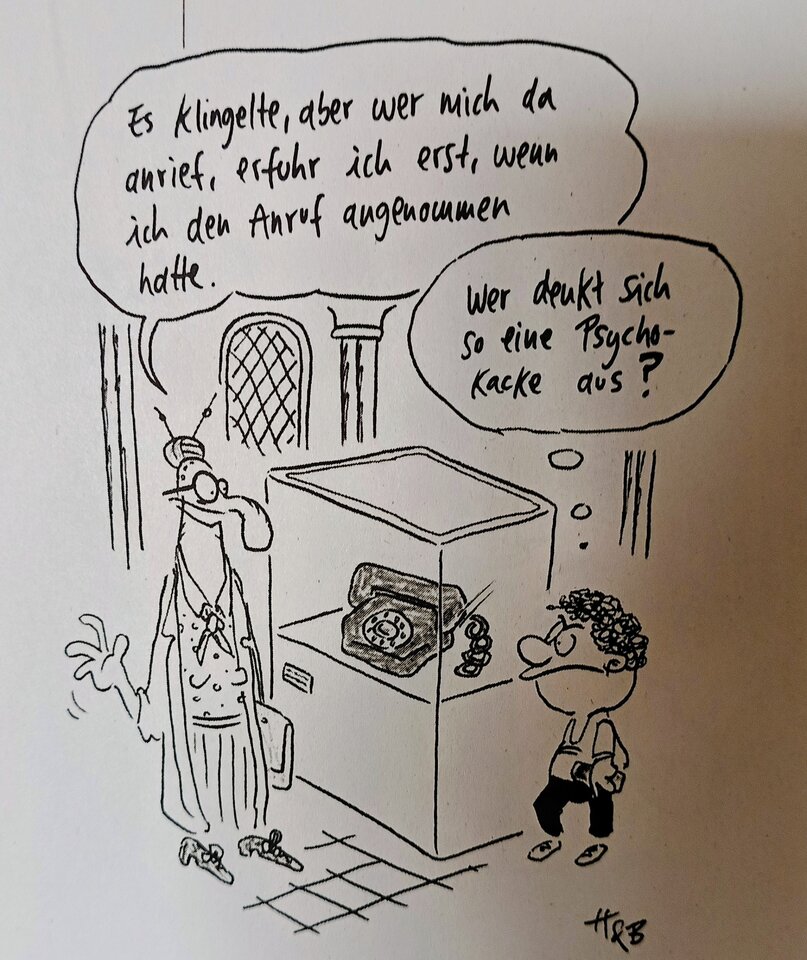 Es klingelte, aber wer mich da
anrief, erfuhr ich erst, wenn
ich den Anruf angenommen
hatte.
Wer denkt sich
so eine Psycho-
kacke aus?
H&B